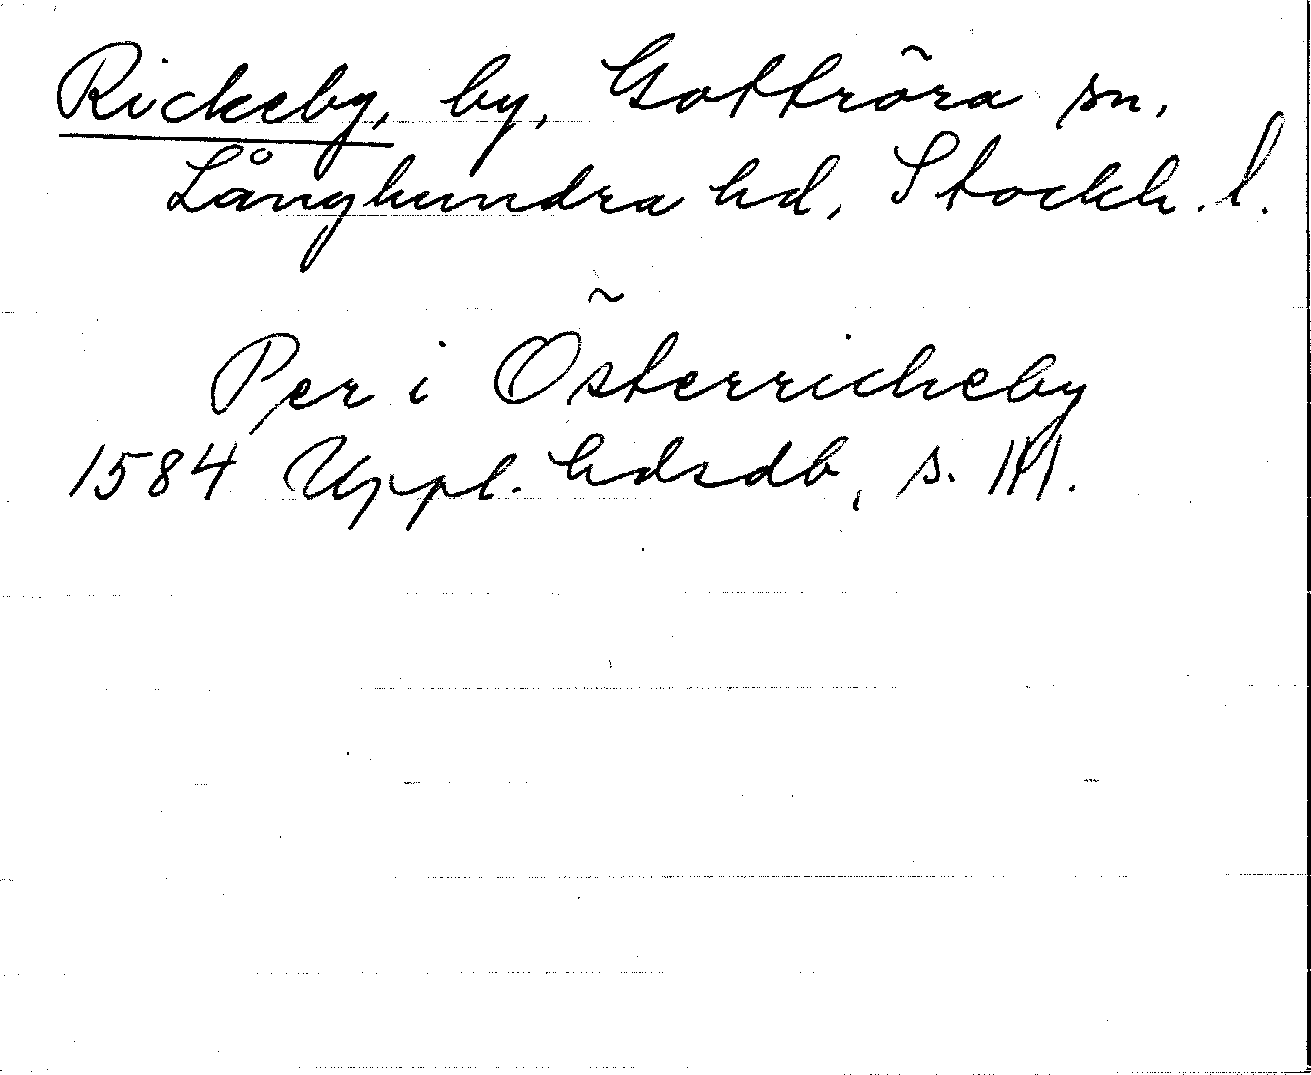 Rickeby, by, Gottröra sn,
Långhundra hd, Stockh. l.
Per i Österrickeby
1584 Uppl. hdsdb, s. 141.